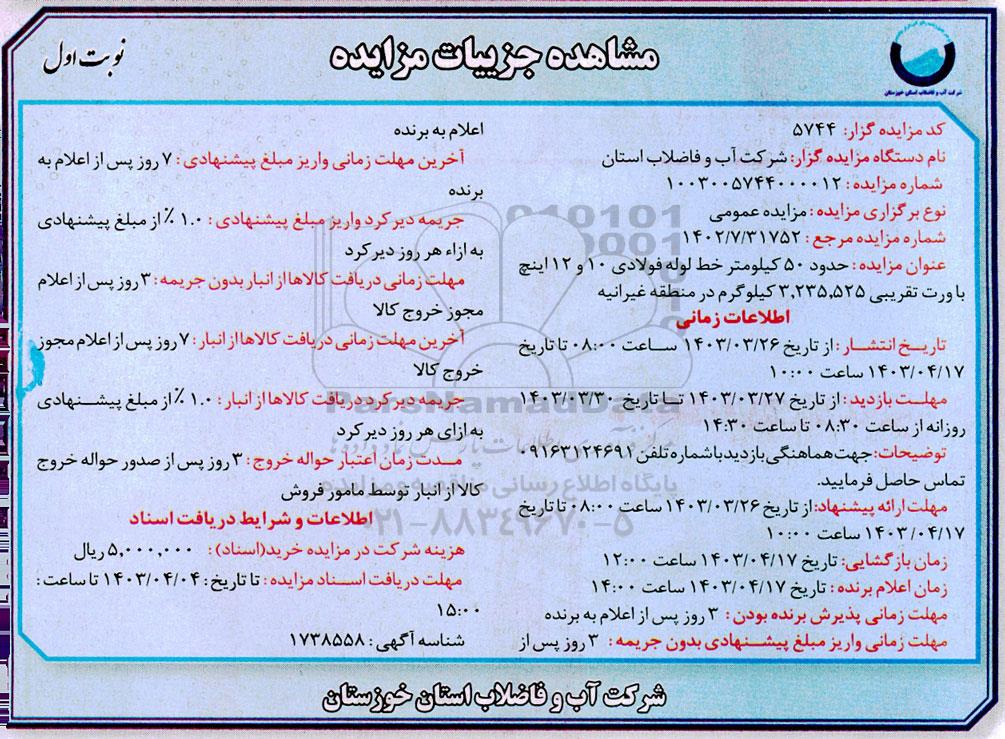 مشاهده جزییات مزایده
نوبت اول
شرکت آب و فاضلاب استان خوزستان
کد مزایده گزار: ۵۷۴۴
نام دستگاه مزایده گزار: شرکت آب و فاضلاب استان
شماره مزایده: ۱۰۰۳۰۰۵۷۴۴۰۰۰۰۱۲
نوع برگزاری مزایده: مزایده عمومی
شماره مزایده مرجع: ۱۴۰۲/۷/۳۱۷۵۲
عنوان مزایده: حدود ۵۰ کیلومتر خط لوله فولادی ۱۰ و ۱۲ اینچ
با ورت تقریبی ۳,۲۳۵,۵۲۵ کیلوگرم در منطقه غیزانیه
اطلاعات زمانی
تاریخ انتشار: از تاریخ ۱۴۰۳/۰۳/۲۶ ساعت ۰۸:۰۰ تا تاریخ
۱۴۰۳/۰۴/۱۷ ساعت ۱۰:۰۰
مهلت بازدید: از تاریخ ۱۴۰۳/۰۳/۲۷ تا تاریخ ۱۴۰۳/۰۳/۳۰
روزانه از ساعت ۰۸:۳۰ تا ساعت ۱۴:۳۰
توضیحات: جهت هماهنگی بازدید با شماره تلفن ۰۹۱۶۳۱۲۴۶۹۱
تماس حاصل فرمایید.
مهلت ارائه پیشنهاد: از تاریخ ۱۴۰۳/۰۳/۲۶ ساعت ۰۸:۰۰ تا تاریخ
۱۴۰۳/۰۴/۱۷ ساعت ۱۰:۰۰
زمان بازگشایی: تاریخ ۱۴۰۳/۰۴/۱۷ ساعت ۱۲:۰۰
زمان اعلام برنده: تاریخ ۱۴۰۳/۰۴/۱۷ ساعت ۱۴:۰۰
مهلت زمانی پذیرش برنده بودن: ۳ روز پس از اعلام به برنده
مهلت زمانی واریز مبلغ پیشنهادی بدون جریمه: ۳ روز پس از
اعلام به برنده
آخرین مهلت زمانی واریز مبلغ پیشنهادی: ۷ روز پس از اعلام به
برنده
جریمه دیرکرد واریز مبلغ پیشنهادی: ۱.۰ ٪ از مبلغ پیشنهادی
به ازاء هر روز دیرکرد
مهلت زمانی دریافت کالاها از انبار بدون جریمه: ۳ روز پس از اعلام
مجوز خروج کالا
آخرین مهلت زمانی دریافت کالاها از انبار: ۷ روز پس از اعلام مجوز
خروج کالا
جریمه دیرکرد دریافت کالاها از انبار: ۱.۰ ٪ از مبلغ پیشنهادی
به ازای هر روز دیرکرد
مدت زمان اعتبار حواله خروج: ۳ روز پس از صدور حواله خروج
کالا از انبار توسط مامور فروش
اطلاعات و شرایط دریافت اسناد
هزینه شرکت در مزایده خرید(اسناد): ۵,۰۰۰,۰۰۰ ریال
مهلت دریافت اسناد مزایده: تا تاریخ: ۱۴۰۳/۰۴/۰۴ تا ساعت:
۱۵:۰۰
شناسه آگهی: ۱۷۳۸۵۵۸
شرکت آب و فاضلاب استان خوزستان
ParsNamadData
پایگاه اطلاع رسانی مناقصه و مزایده
۰۲۱-۸۸۳۴۹۶۷۰-۵